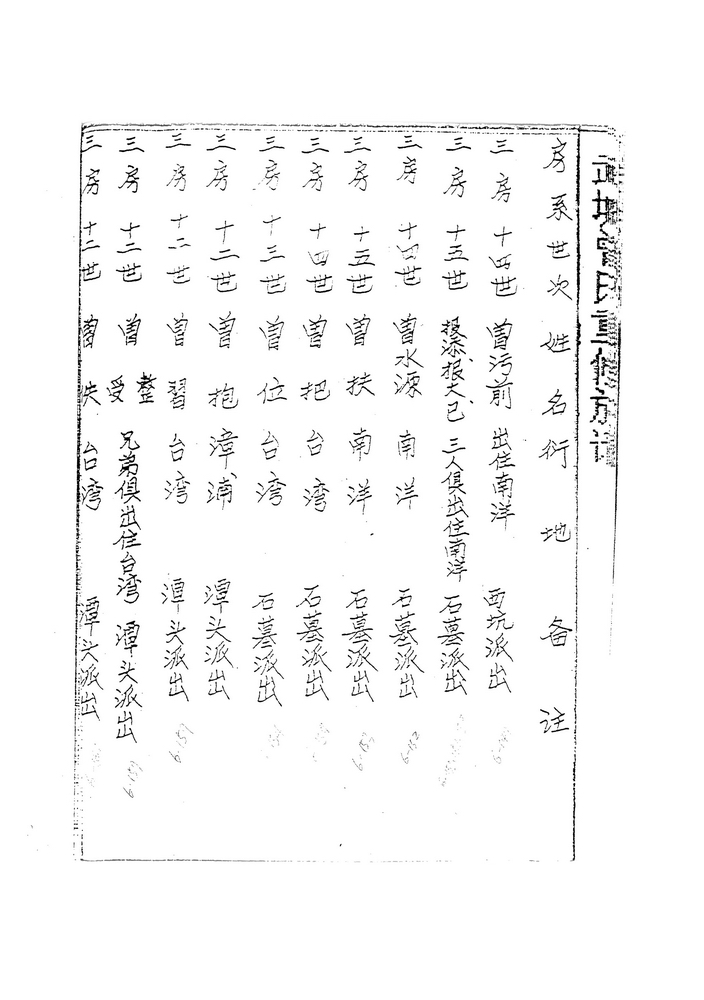 武城曾氏重修族谱
房系世次姓名衍地备注
三房十四世曾污前出住南洋西坑派出
三房十五世 三人俱出住南洋石墓派出
三房十四世曾水源南洋石墓派出
三房十五世曾扶南洋石墓派出
三房十四世曾把台湾石墓派出
三房十三世曾位台湾石墓派出
三房十二世曾抱漳浦潭头派出
三房十二世曾習台湾潭头派出
三房十二世曾整受兄弟俱出住台湾潭头派出
三房十二世曾佚台湾潭头派出